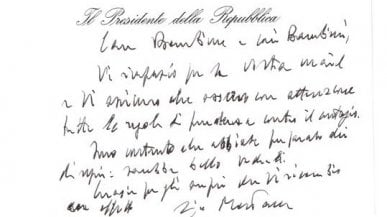 Il Presidente della Repubblica
Care Bambine e cari Bambini,
Vi ringrazio per la vostra mail
e Vi assicuro che osservo con attenzione
tutte le regole di prudenza contro il contagio.
Sono contento che abbiate preparato dei
disegni: sarebbe bello vederli.
Grazie per gli auguri che Vi ricambio
con affetto